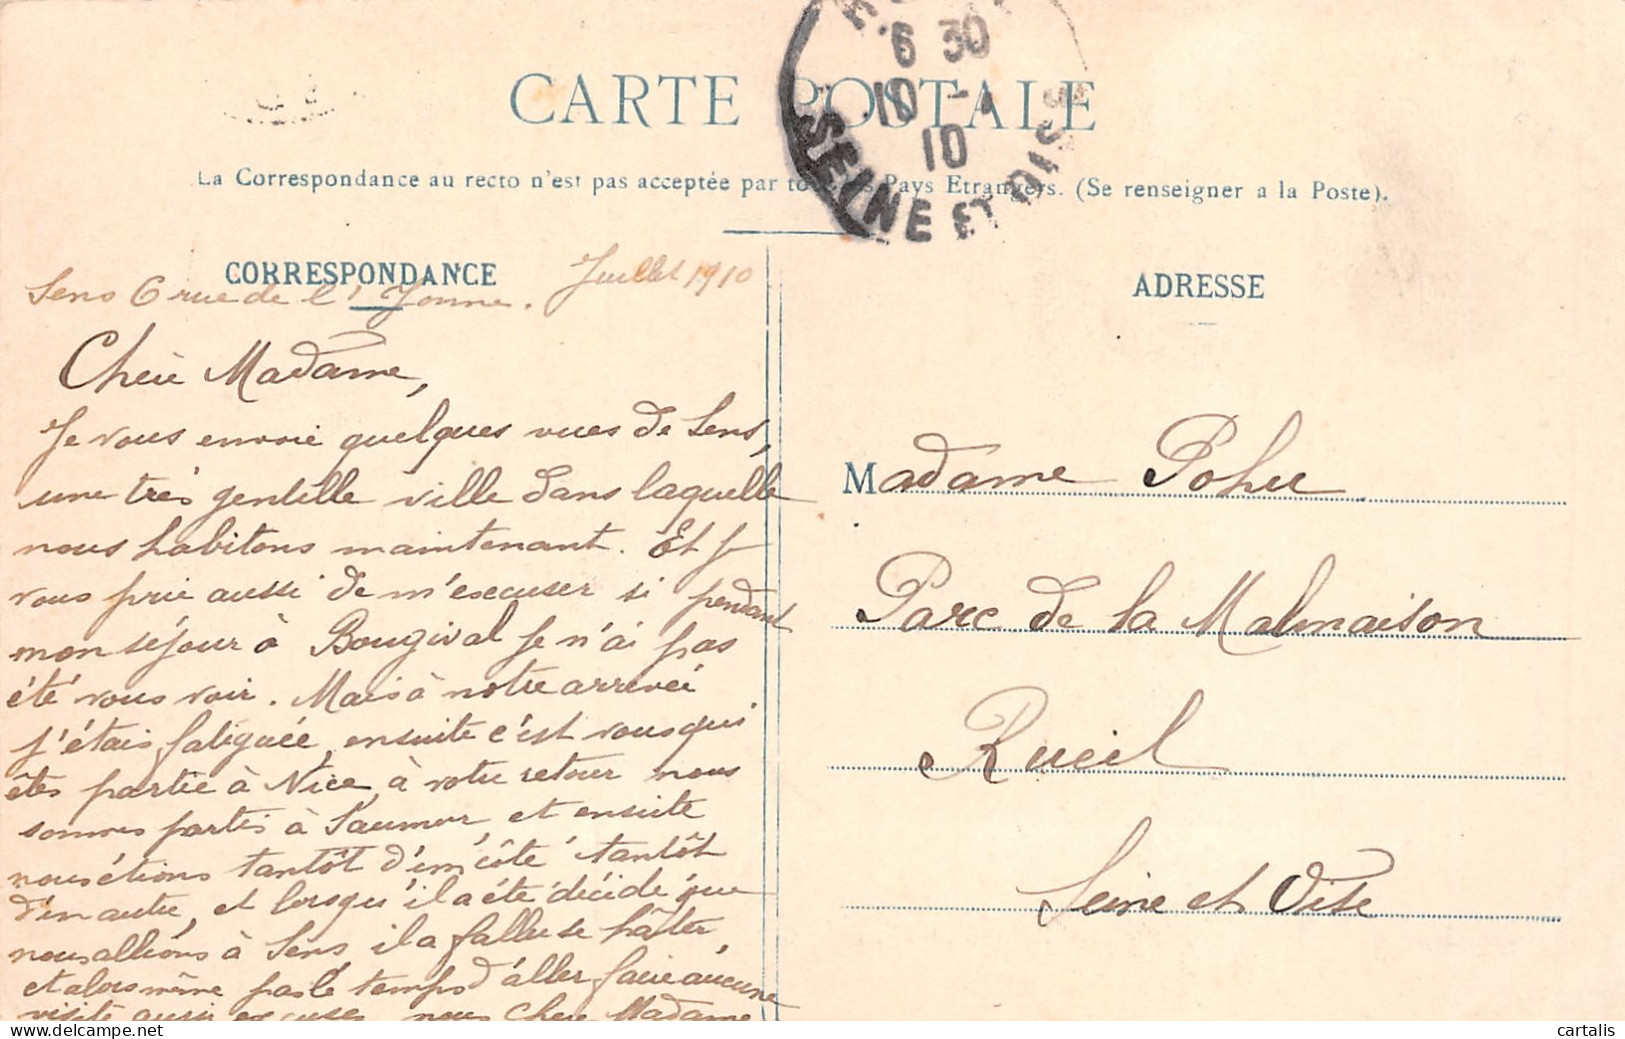 6 30
10 - 
10
SEINE ET OISE
CARTE POSTALE
La Correspondance au recto n'est pas acceptée par tous les Pays Etrangers. (Se renseigner a la Poste).
CORRESPONDANCE
Juillet 1910
Sens 6 rue de l'Yonne.
Chère Madame,
Je vous envoie quelques vues de Sens,
une très gentille ville dans laquelle
nous habitons maintenant. Et je
vous prie aussi de m'excuser si pendant
mon séjour à Bougival je n'ai pas
été vous voir. Mais à notre arrivée
j'étais fatiguée, ensuite c'est vous qui
êtes partie à Nice, à votre retour nous
sommes partis à Saumur, et ensuite
nous étions tantôt d'un côté tantôt
d'un autre, et lorsqu'il a été décidé que
nous allions à Sens, il a fallu se hâter,
et alors même pas le temps d'aller faire aucune
visite aussi excusez nous Chère Madame
ADRESSE
Madame Pohu
Parc de la Malmaison
Rueil
Seine et Oise
cartalis
delcampe.net